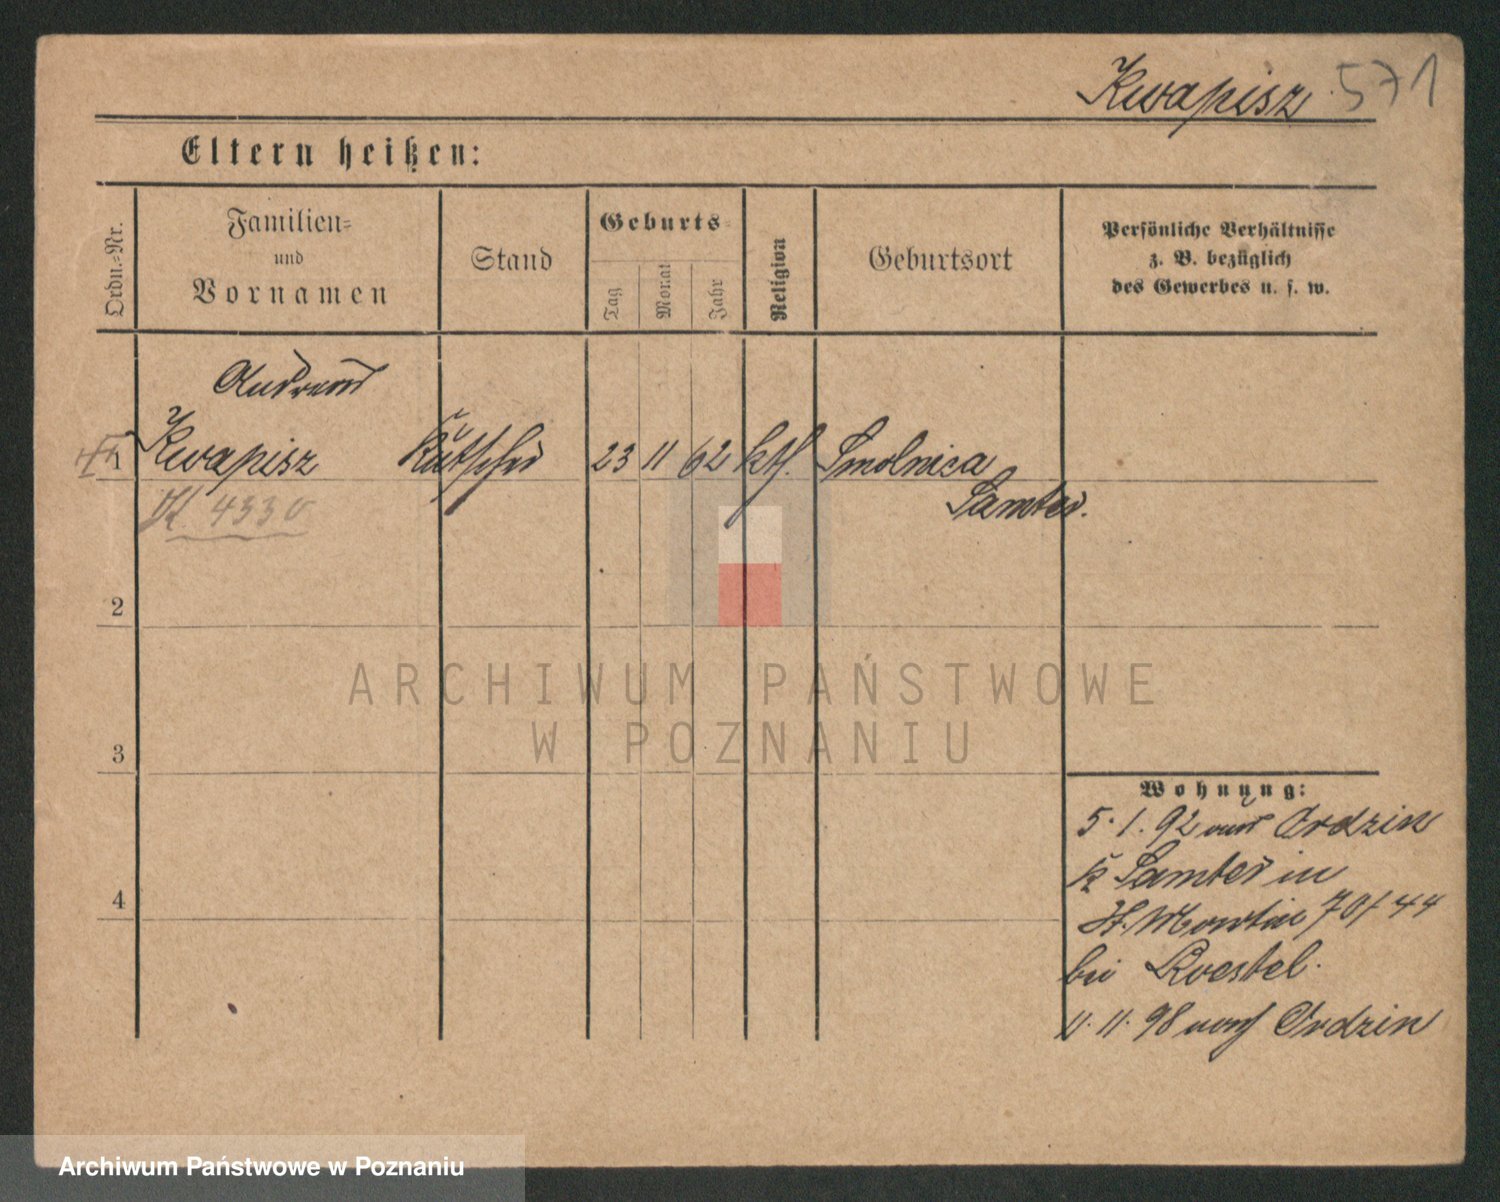 Kwapisz 571
Eltern heißen:
Ordn.-Nr.
Familien-
und
Vornamen
Stand
Geburts-
Tag
Monat
Jahr
Religion
Geburtsort
Persönliche Verhältnisse
z. B. bezüglich
des Gewerbes u. s. w.
Andreas
1 Kwapisz Kutscher 23 11 62 kth. Smolnica
4330
Samter.
2
ARCHIWUM PAŃSTWOWE
W POZNANIU
3
Wohnung:
5. 1. 92 aus Ordzin
Kr. Samter in
4
St. Martin 70/44
bei Roestel.
11. 11. 98 nach Ordzin
Archiwum Państwowe w Poznaniu